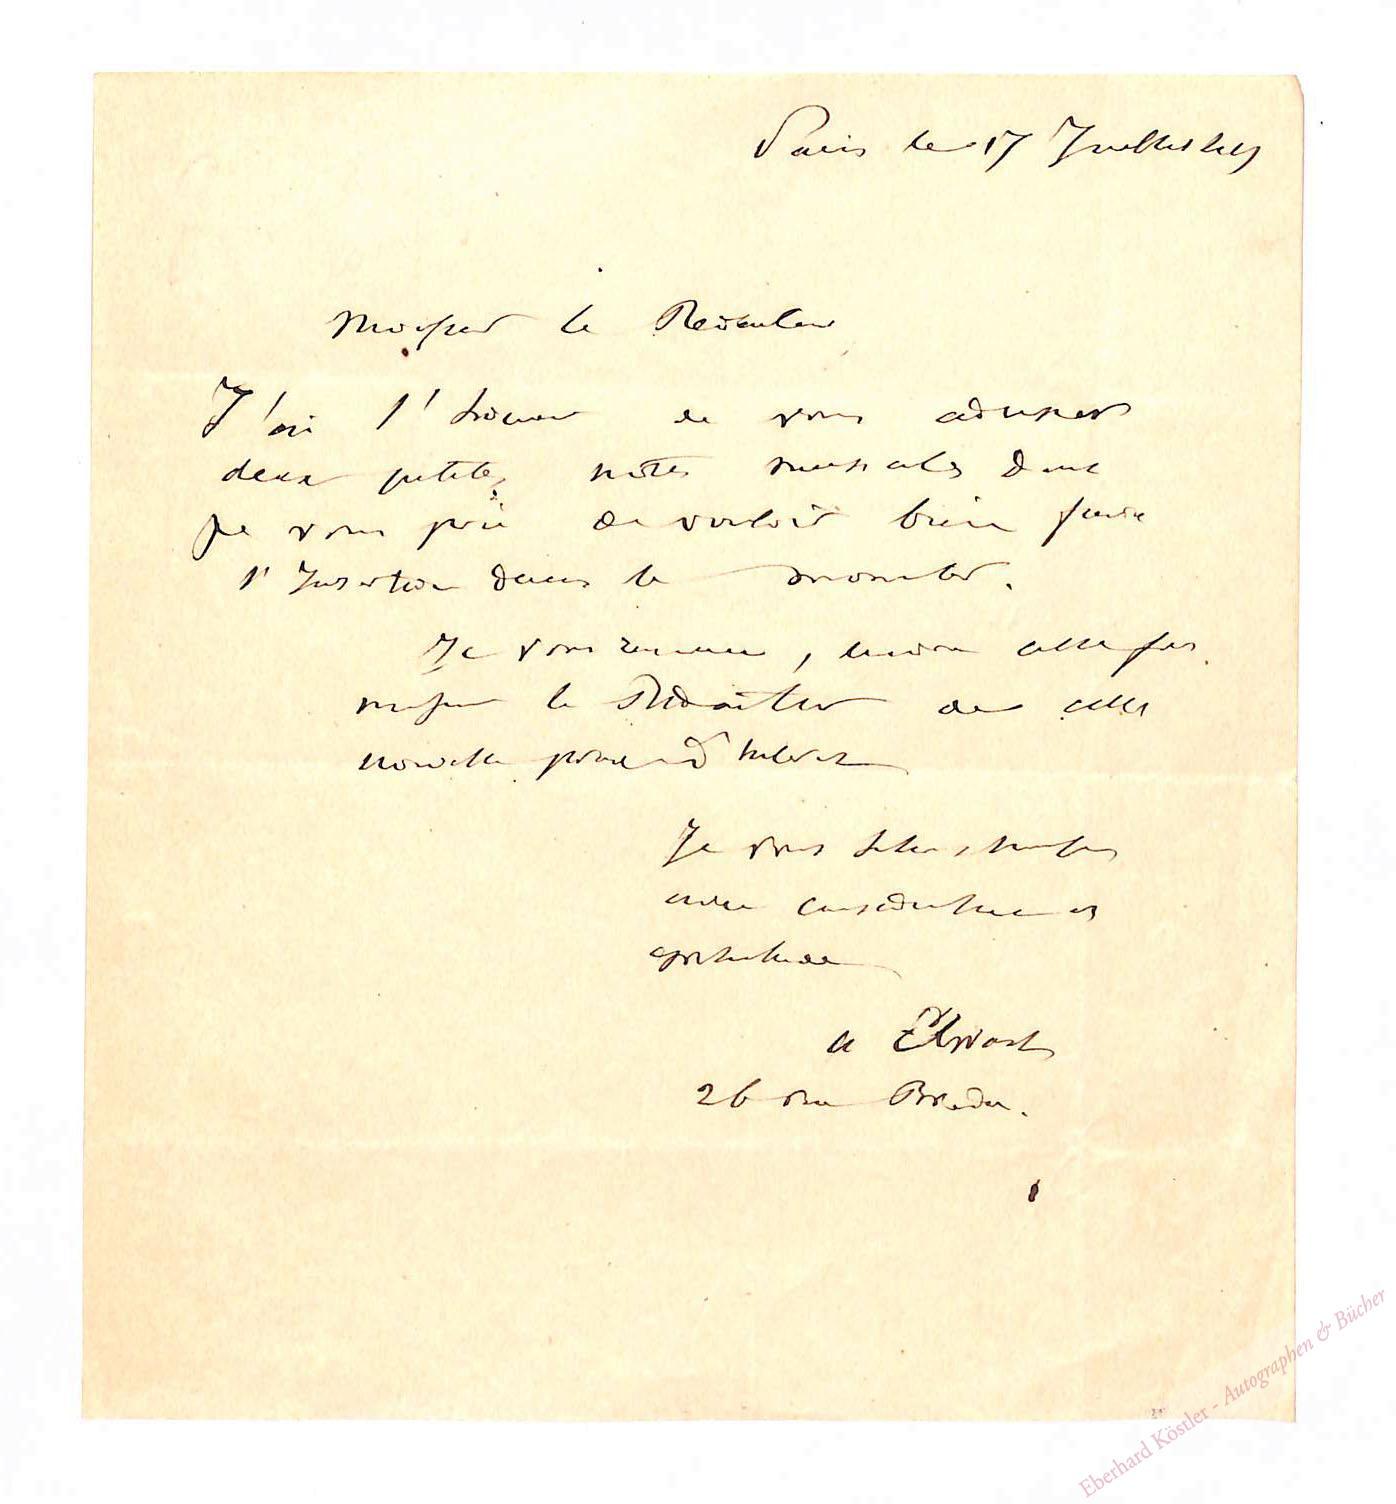 Paris le 17 Juillet
Monsieur le Rédacteur
J'ai l'honneur de vous adresser
deux petites notes musicales dont
je vous prie de vouloir bien faire
l'Insertion dans le moniteur.
Je vous remercie, encore cette fois
monsieur le Rédacteur de cette
nouvelle preuve d'intérêt
Je vous salue, monsieur
avec considération et
gratitude
a Elwart
26 rue Breda.
Eberhard Köstler - Autographen & Bücher